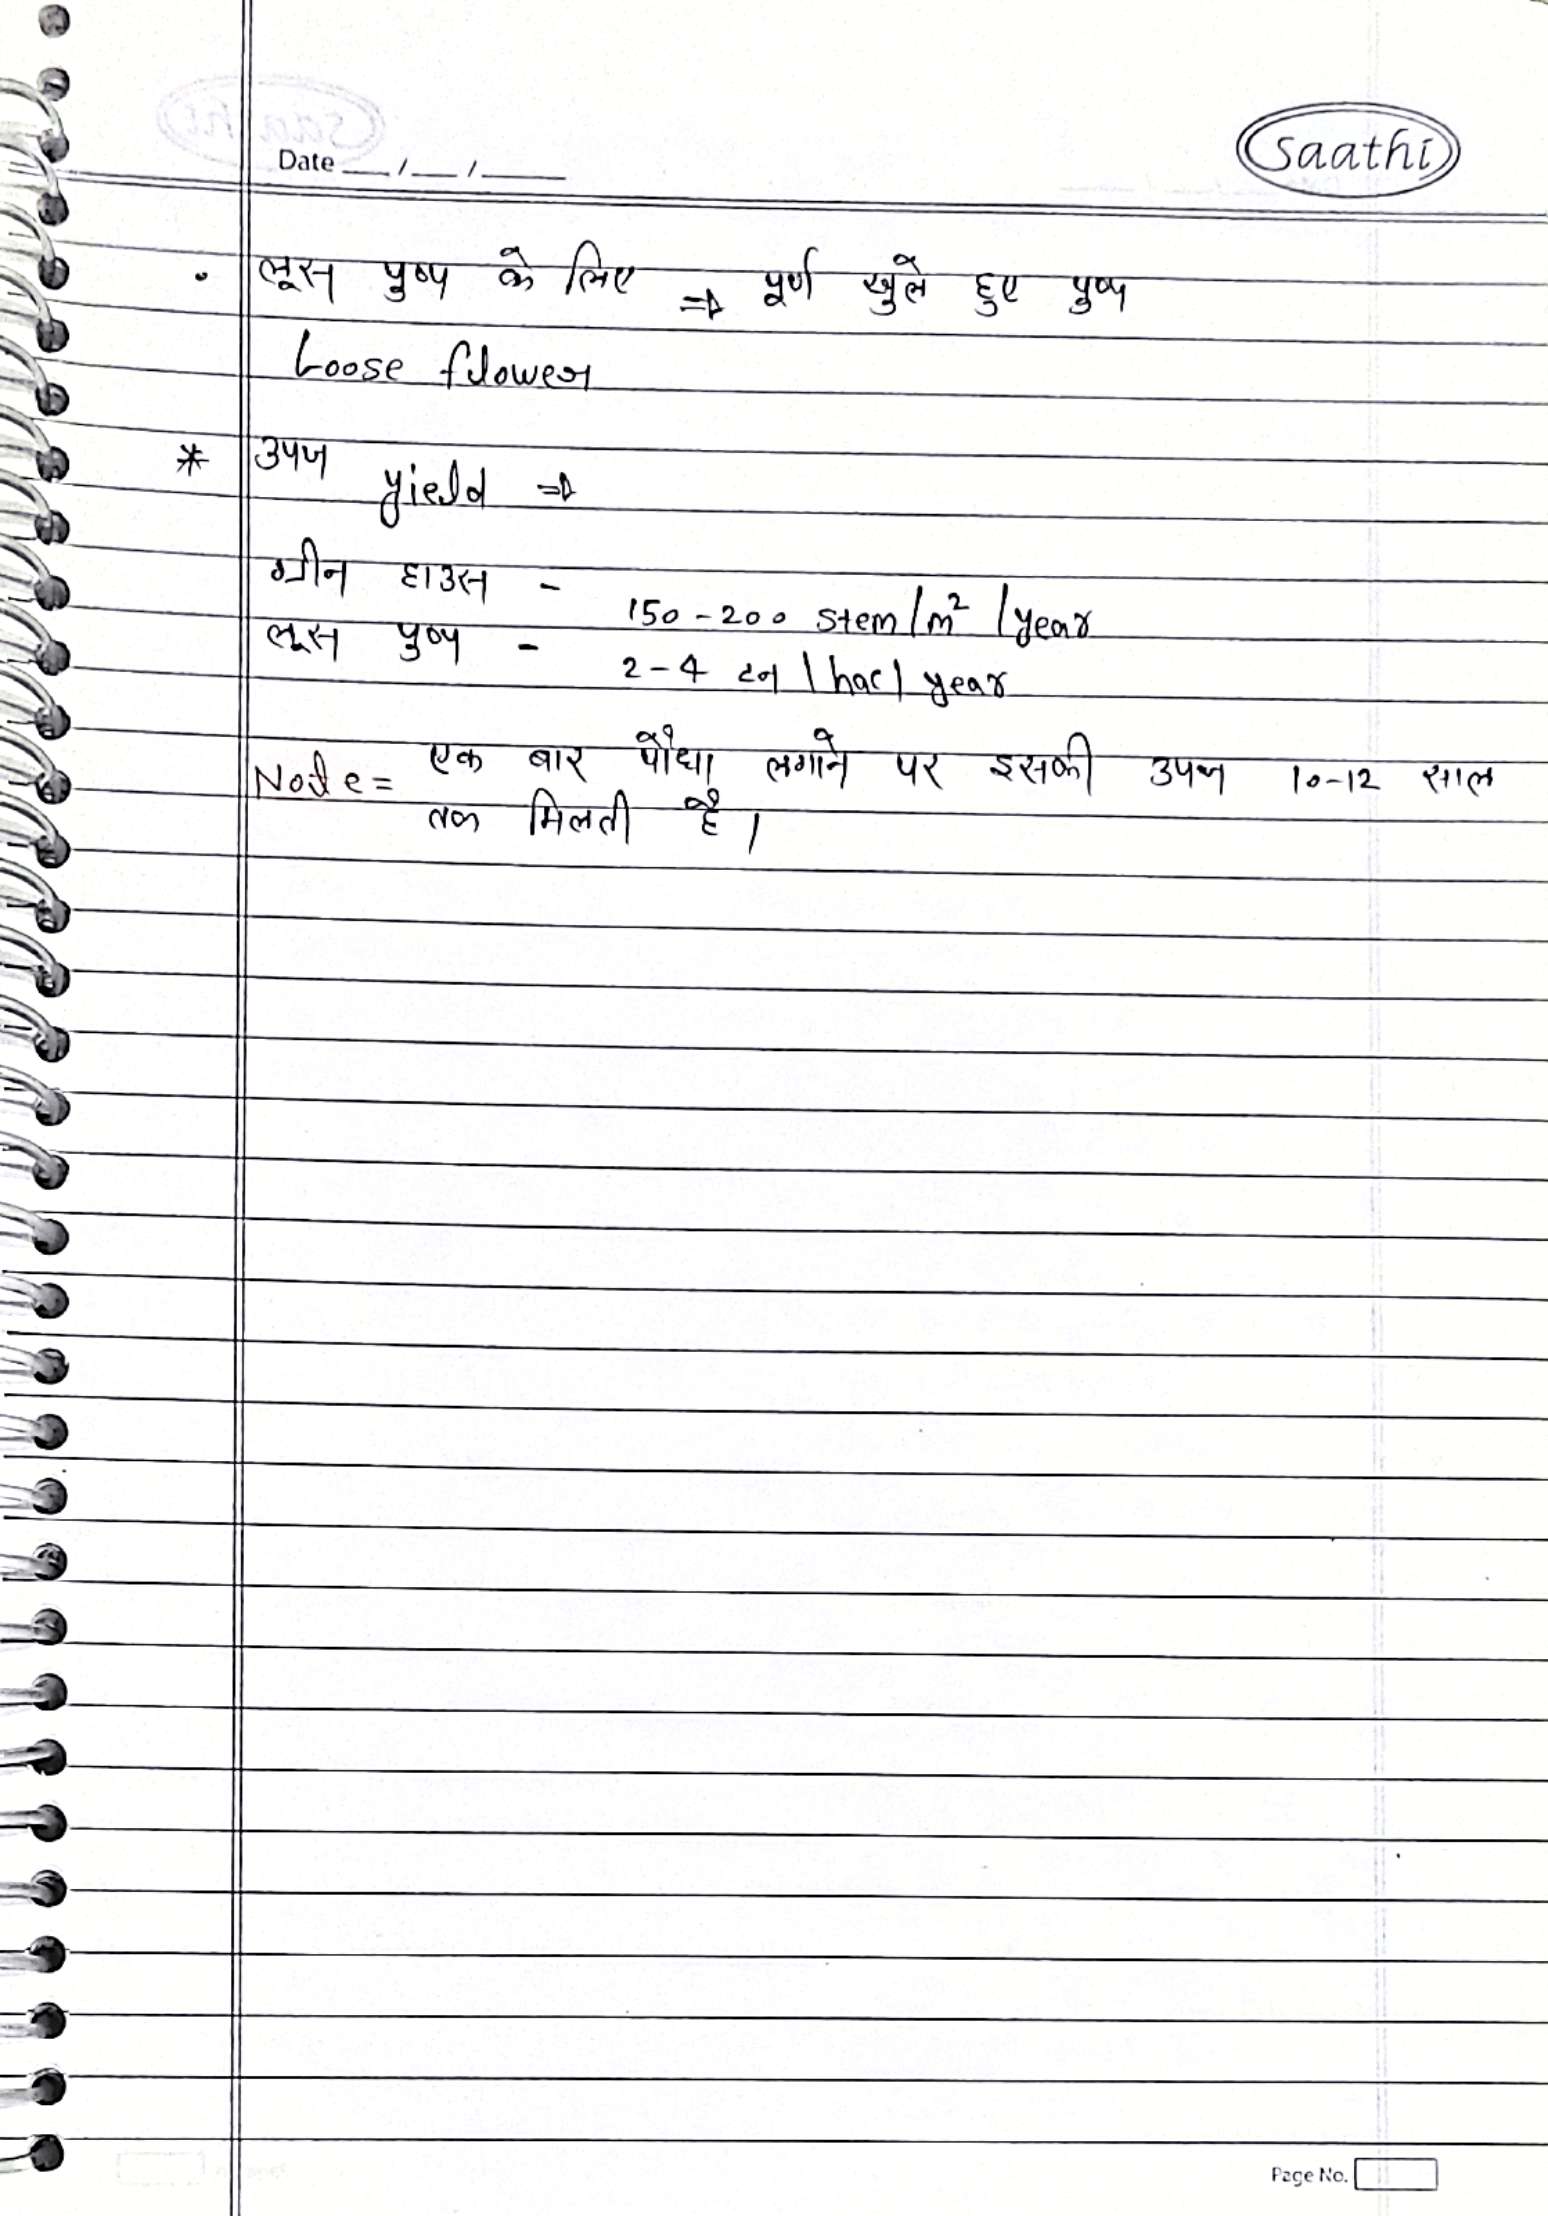 saathi
Date __/__/____
• लूस पुष्प के लिए ⇒ पूर्ण खुले हुए पुष्प
Loose flower
* उपज yield ⇒
ग्रीन हाउस - 150-200 stem/m² /year
लूस पुष्प - 2-4 टन |hac| year
Note = एक बार पौधा लगाने पर इसकी उपज 10-12 साल
तक मिलती है।
Page No.